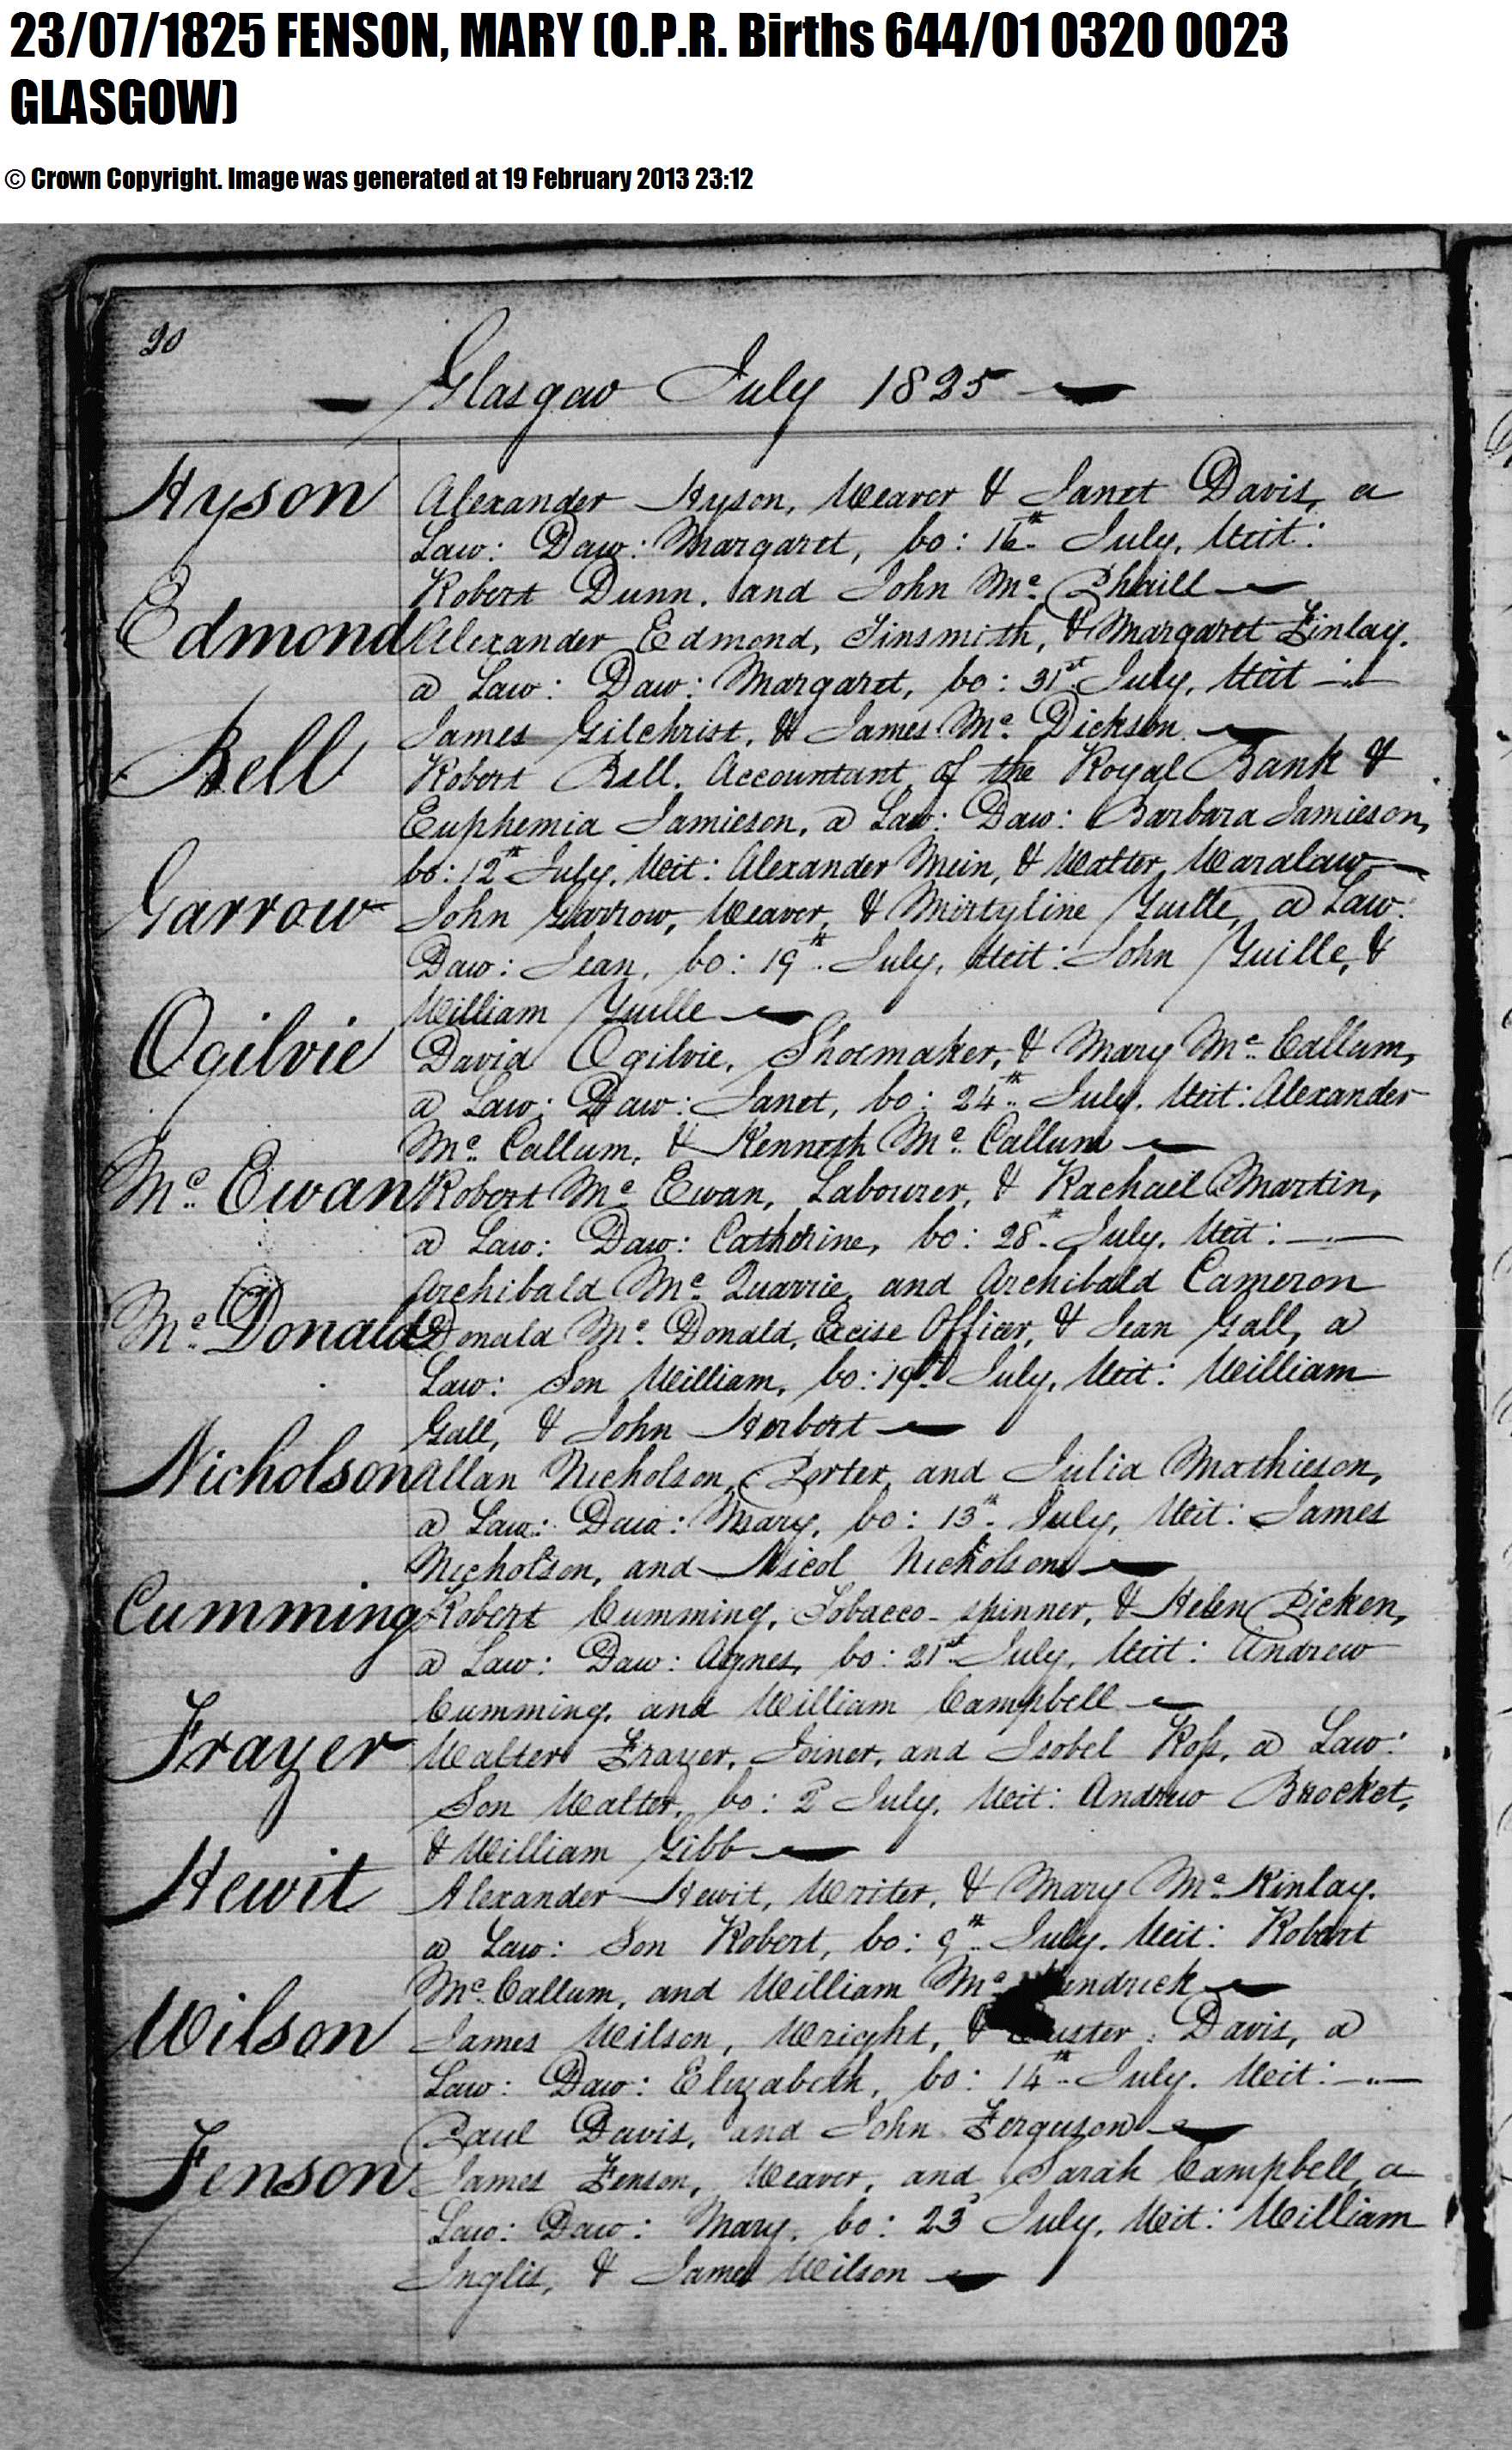 23/07/1825 FENSON, MARY (O.P.R. Births 644/01 0320 0023
GLASGOW)
© Crown Copyright. Image was generated at 19 February 2013 23:12
20
Glasgow July 1825
Hyson
Alexander Hyson, Weaver & Janet Davis, a
Law: Daw: Margaret, bo: 16th July. Wit:
Robert Dunn, and John Mc Phaill
Edmond
Alexander Edmond, Tinsmith, & Margaret Finlay,
a Law: Daw: Margaret, bo: 31st July, Wit
James Gilchrist, & James Mc Dickson
Bell
Robert Bell, Accountant of the Royal Bank &
Euphemia Jamieson, a Law: Daw: Barbara Jamieson,
bo: 12th July, Wit: Alexander Mein, & Walter
Garrow
John Garrow, Weaver, & Mirtyline Yuille, a Law:
Daw: Jean, bo: 19th July, Wit: John Yuille, &
William Yuille
Ogilvie
David Ogilvie, Shoemaker, & Mary Mc Callum,
a Law: Daw: Janet, bo: 24th July. Wit: Alexander
Mc Callum, & Kenneth Mc Callum
Mc Ewan
Robert Mc Ewan, Labourer, & Rachael Martin,
a Law: Daw: Catherine, bo: 28th July. Wit:
Archibald Mc Quarrie, and Archibald Cameron
Mc Donald
Donald Mc Donald, Excise Officer, & Jean Gall, a
Law: Son William, bo: 19th July, Wit: William
Gall, & John Herbert
Nicholson
Allan Nicholson, Porter, and Julia Mathieson,
a Law: Daw: Mary, bo: 13th July, Wit: James
Nicholson, and Nicol Nicholson
Cumming
Robert Cumming, Tobacco-spinner, & Helen Picken,
a Law: Daw: Agnes, bo: 21st July, Wit: Andrew
Cumming, and William Campbell
Frazer
Walter Frazer, Joiner, and Isobel Ross, a Law:
Son Walter, bo: 2d July, Wit: Andrew Brocket,
& William Gibb
Hewit
Alexander Hewit, Writer, & Mary Mc Kinlay,
a Law: Son Robert, bo: 9th July. Wit: Robert
Mc Callum, and William Mc
Wilson
James Wilson, Wright, & Davis, a
Law: Daw: Elizabeth, bo: 14th July. Wit:
Paul Davis, and John Ferguson
Fenson
James Fenson, Weaver, and Sarah Campbell, a
Law: Daw: Mary, bo: 23d July, Wit: William
Inglis, & James Wilson